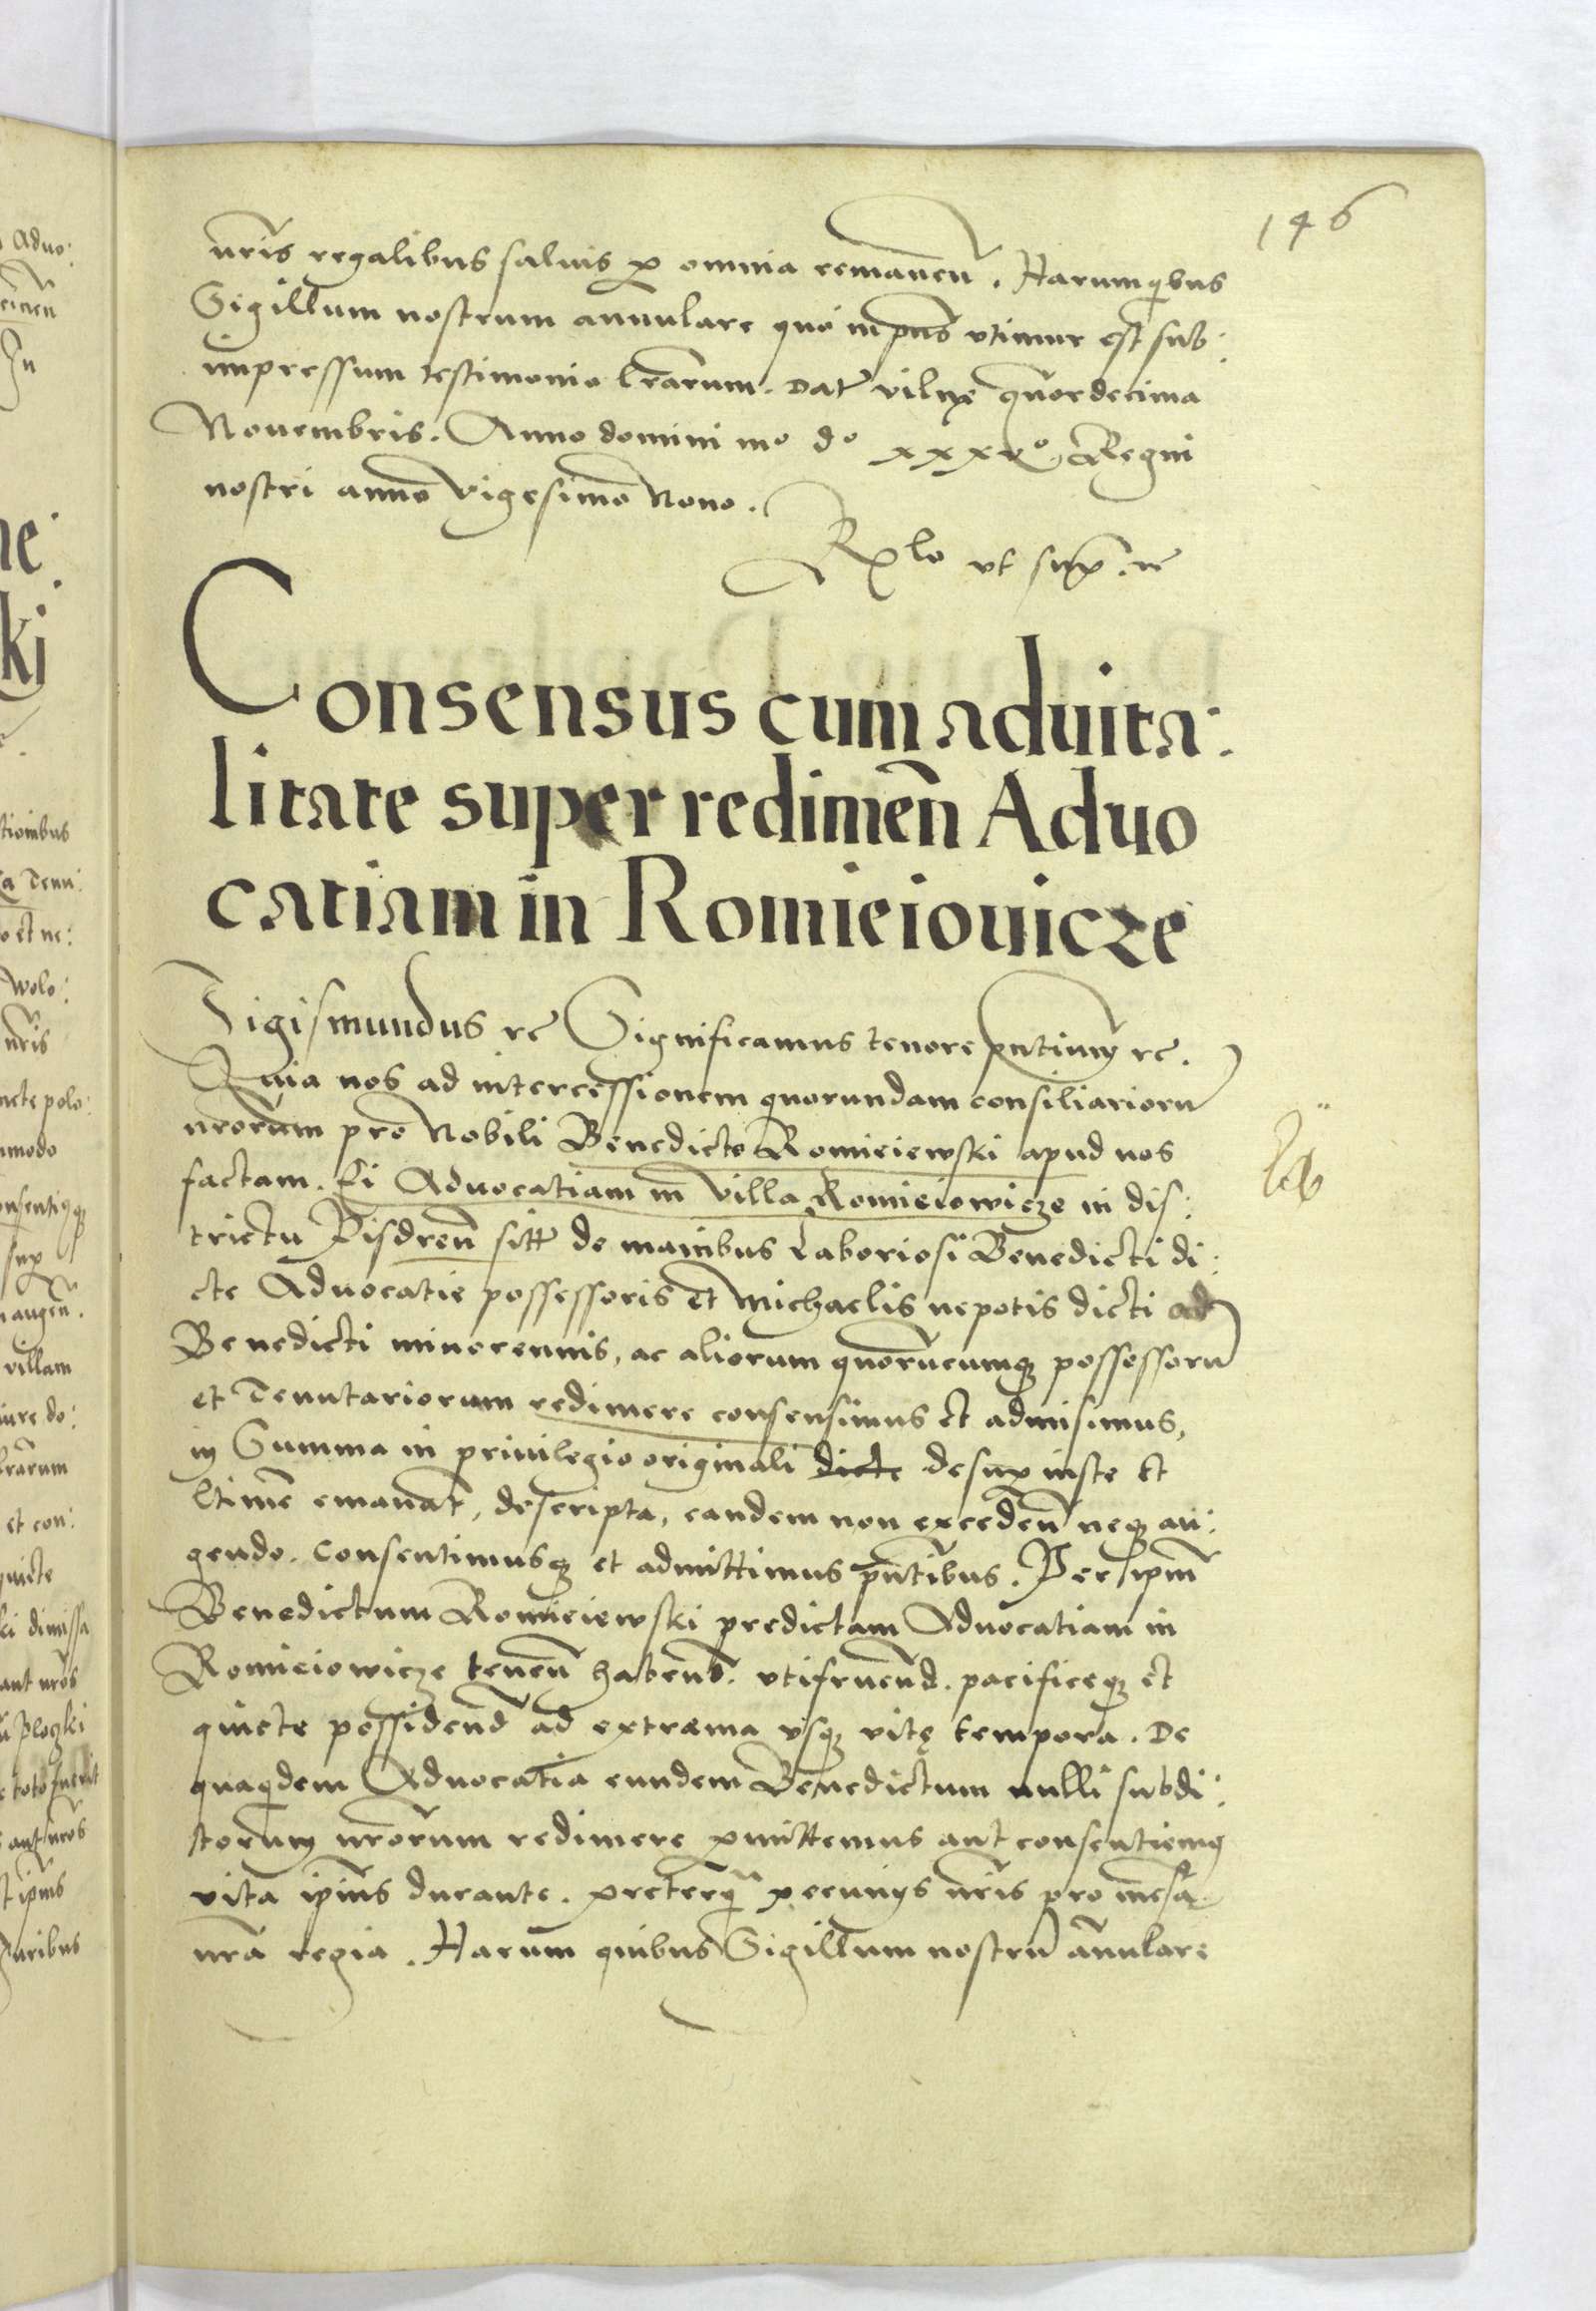 146
nr̃is regalibus saluis p omnia remaneñ. Harum qibus
Sigillum nostrum annulare quo inpn̄s vtimur est sub:
impressum testimonio lr̃arum. Dat̃ vilnȩ qũordecima
Nouembris. Anno domini mo do xxxvo Regni
nostri anno vigesimo Nono.
Rlo vt sup. rc
Consensus cum aduita:
litate super redimeñ Aduo
catiam in Romieiouicze
Sigismundus rc Significamus tenore pn̄tium rc.
Quia nos ad intercessionem quorundam consiliarioru
nrorum pro Nobili Benedicto Romieiewski apud nos
factam. Ei Aduocatiam in villa Romieiowicze in dis:
trictu Pisdreñ sitt̃ de manibus Laboriosi Benedicti di:
cte Aduocatie possessoris et Michaelis nepotis dicti
Benedicti minorennis, ac aliorum quorũcumq possessoru
et Tenutariorum redimere consensimus et admisimus,
in Summa in priuilegio originali dicte desup iuste et
ltime emanat̃, descripta, eandem non excedeñ neq au:
gendo. Consentimusq et admittimus pn̄tibus. Per ipm̄
Benedictum Romieiewski predictam Aduocatiam in
Romieiowicze teneñ habend. vtifruend. pacificeq et
quiete possidend ad extrema vsq vitę tempora. De
quaqdem Aduocatia eundem Benedictum nulli subdi:
torum nrorum redimere pmittemus aut consentiemq
vita ipius durante. preterq̃ peccunijs nr̃is pro mensa
nr̃a regia. Harum quibus Sigillum nostru ãnulare